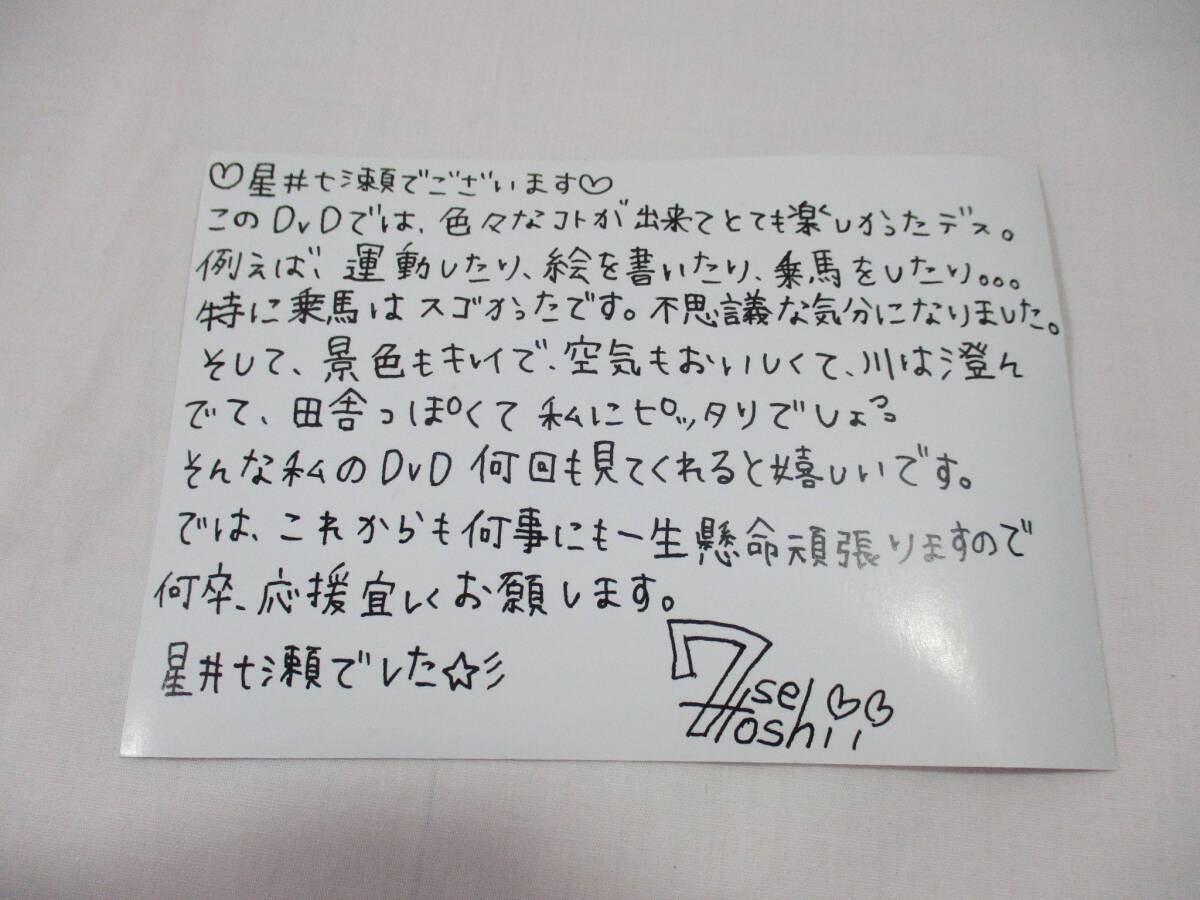 ♡星井七瀬でございます♡
このDVDでは、色々なコトが出来てとても楽しかったデス。
例えば、運動したり、絵を書いたり、乗馬をしたり。。。
特に乗馬はスゴかったです。不思議な気分になりました。
そして、景色もキレイで、空気もおいしくて、川は澄ん
でて、田舎っぽくて私にピッタリでしょっ
そんな私のDVD何回も見てくれると嬉しいです。
では、これからも何事にも一生懸命頑張りますので
何卒、応援宜しくお願します。
星井七瀬でした☆彡
7se
Hoshii